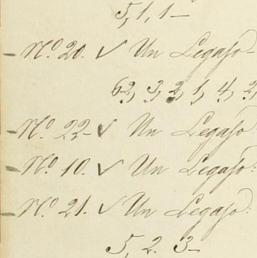 5, 1, 1-
- N.º 20. ✓ Un Legajo-
62, 3, 2, 1, 4, 2,
- N.º 22- ✓ Un Legajo-
- N.º 10. ✓ Un Legajo-
- N.º 21. ✓ Un Legajo-
5, 2. 3-